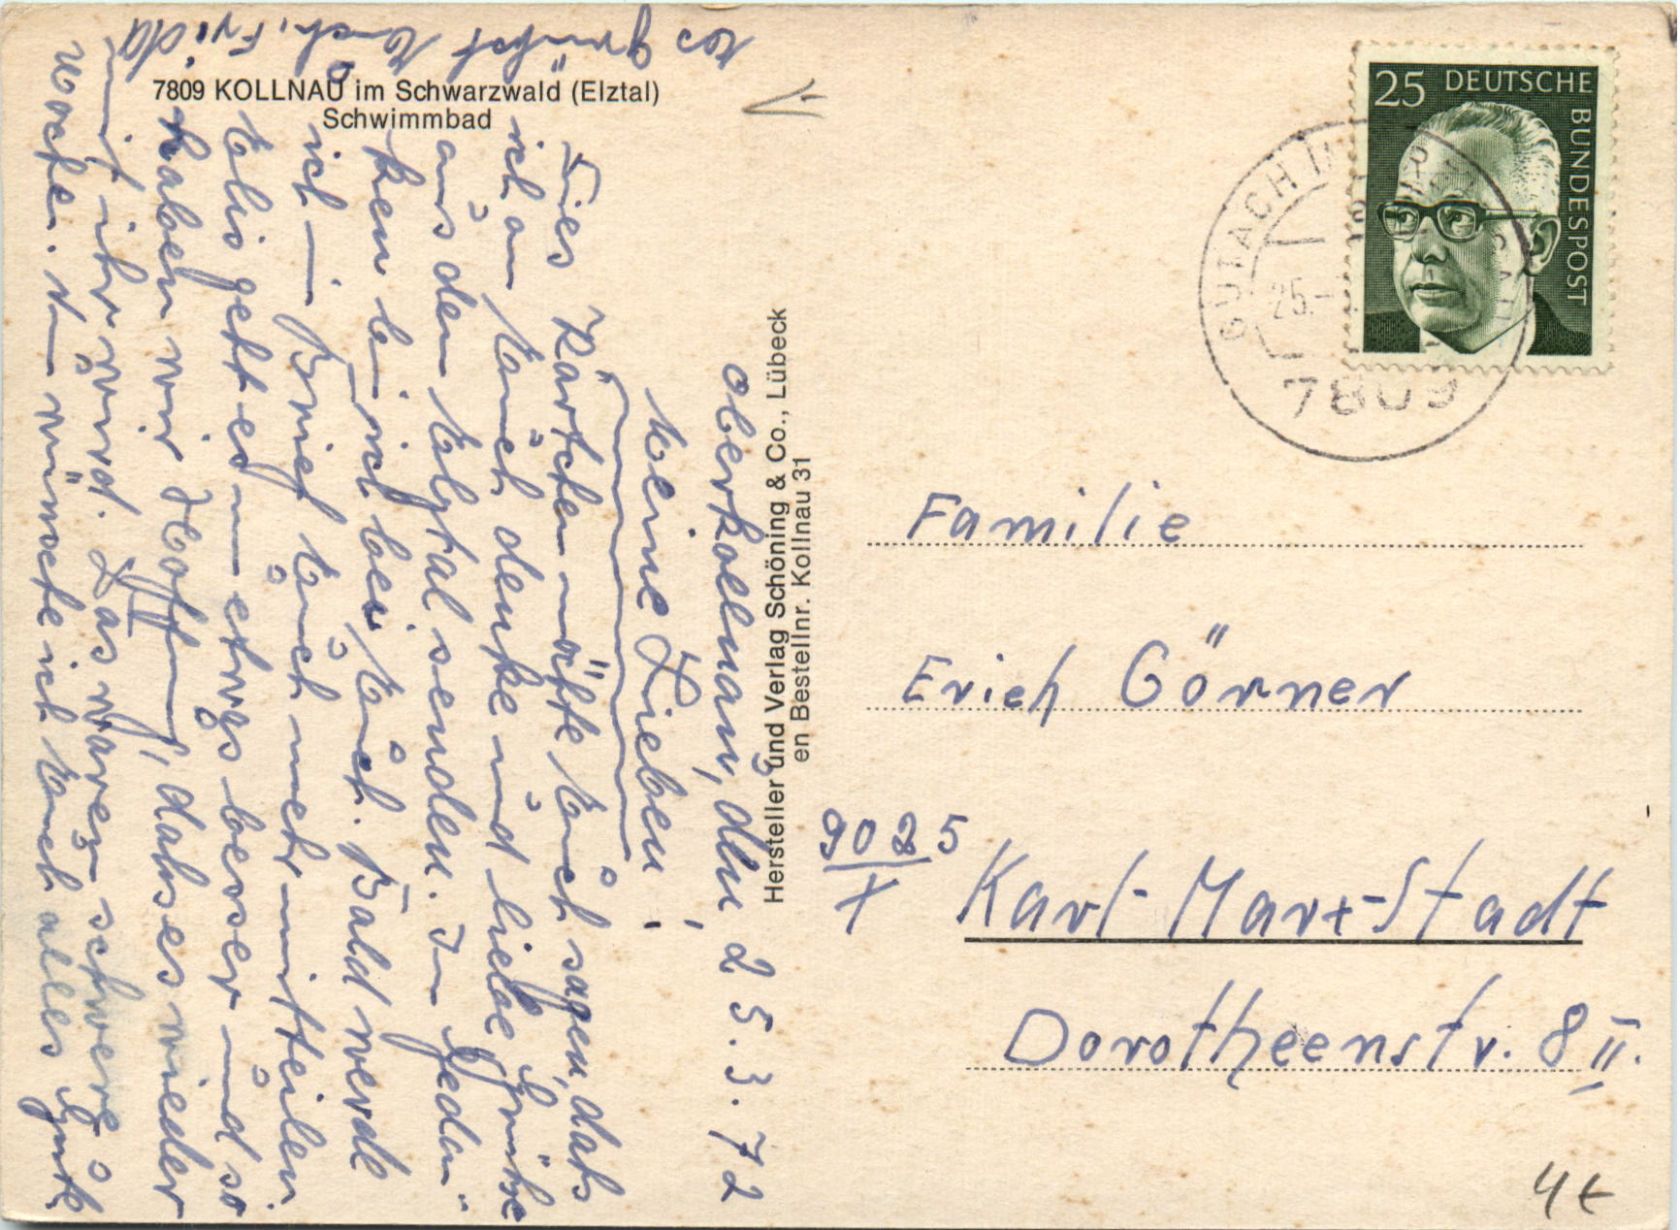 7809 KOLLNAU im Schwarzwald (Elztal)
Schwimmbad
Oberkollnau, den 25.3.72
Meine Lieben!
Dies Kärtchen möchte Euch sagen, dass
ich an Euch denke und liebe Grüsse
aus dem Elztal senden. In Gedan-
ken bin ich bei Euch. Bald werde
ich im Brief Euch mehr mitteilen.
Elis geht es um etwas besser und so
haben wir Hoffnung, dass es wieder
mit ihr wird. Das waren schwere
Wochen. Nun wünsche ich Euch alles Gute
Es grüsst Euch, Frida
Hersteller und Verlag Schöning & Co., Lübeck
en Bestellnr. Kollnau 31
25 DEUTSCHE
BUNDESPOST
GUTACH
25.
7809
Familie
Erich Görner
9025
X
Karl-Marx-Stadt
Dorotheenstr. 8 II.
4 €